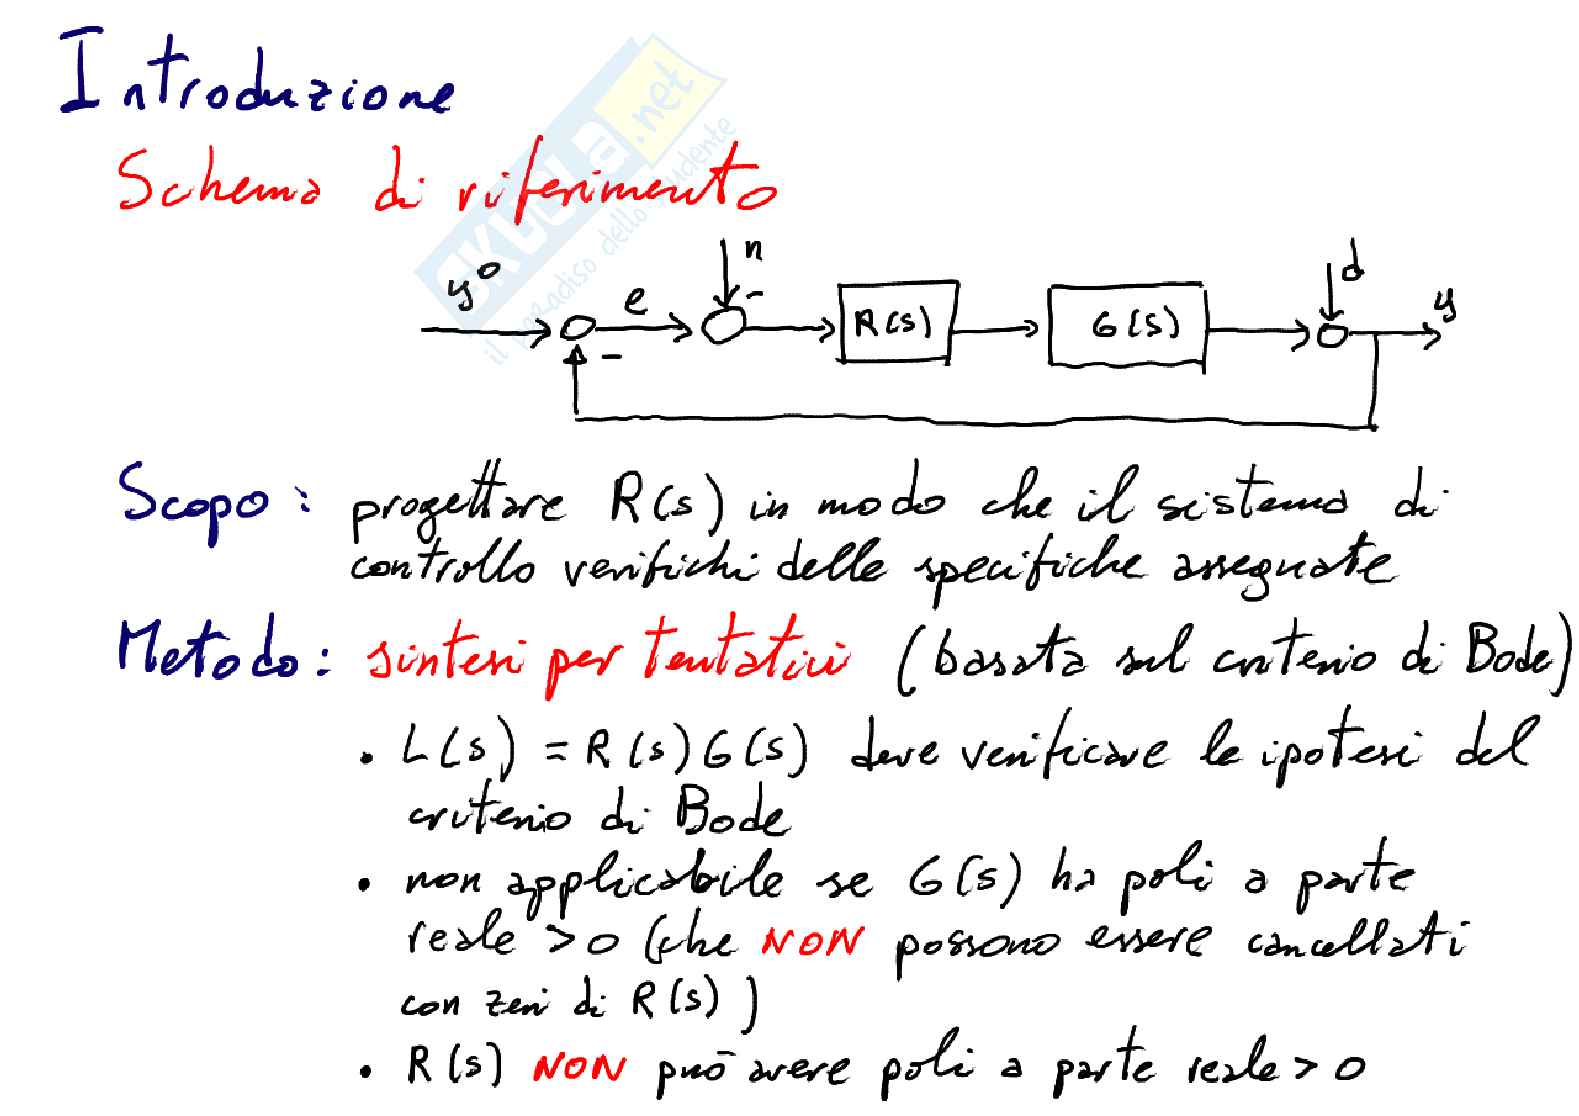 Introduzione
Schema di riferimento
SKUOLA.net
il paradiso dello studente
n
d
y° e - R(s) G(s) y
-
Scopo: progettare R(s) in modo che il sistema di
controllo verifichi delle specifiche assegnate
Metodo: sintesi per tentativi (basata sul criterio di Bode)
• L(s) = R(s)G(s) deve verificare le ipotesi del
criterio di Bode
• non applicabile se G(s) ha poli a parte
reale >0 (che NON possono essere cancellati
con zeri di R(s))
• R(s) NON può avere poli a parte reale > 0